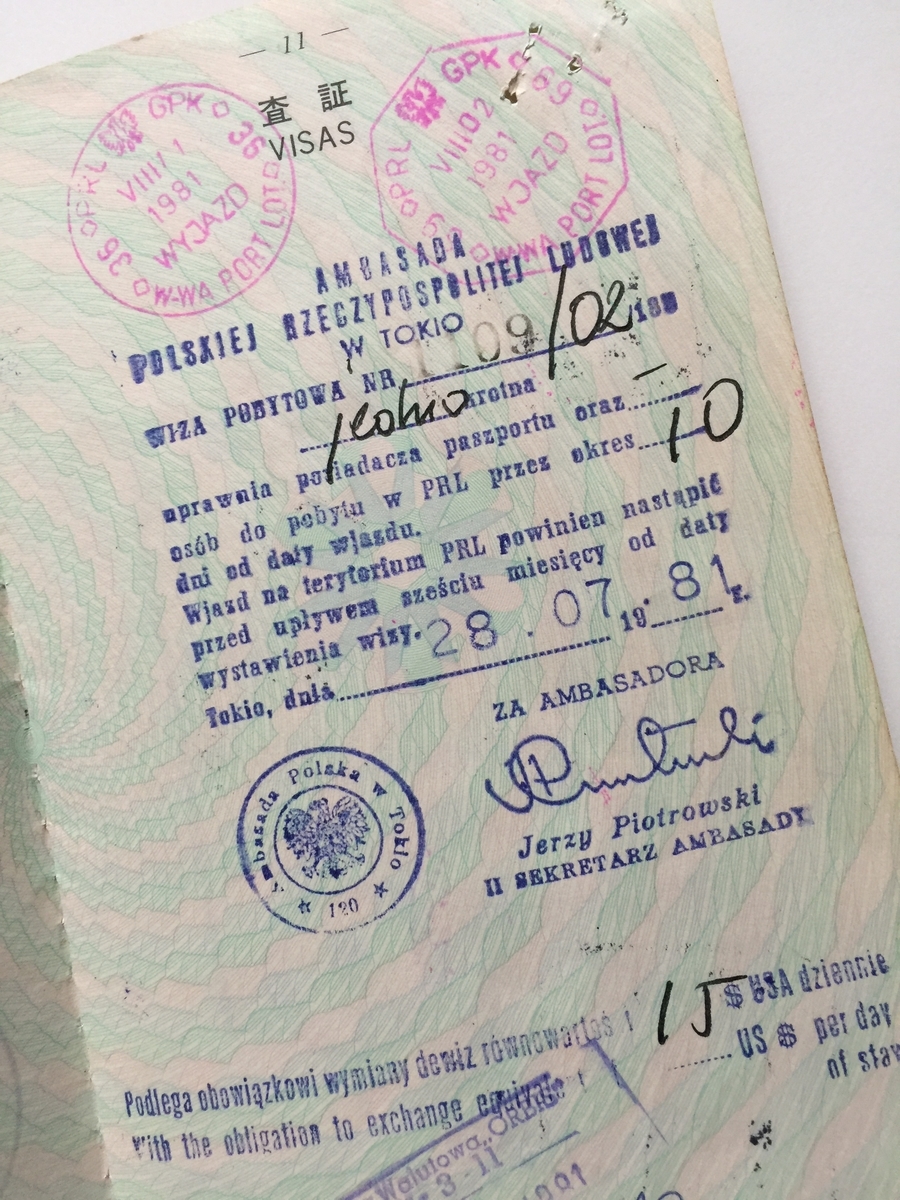 — 11 —
査 証
VISAS
PRL GPK 36
VIII 11
1981
WYJAZD
36 W-WA PORT LOT.
PRL GPK 69
VIII 02
1981
WJAZD
69 W-WA PORT LOT.
AMBASADA
POLSKIEJ RZECZYPOSPOLITEJ LUDOWEJ
W TOKIO
WIZA POBYTOWA NR 1109/02
jedno krotna
uprawnia posiadacza paszportu oraz —
osób do pobytu w PRL przez okres 10
dni od daty wjazdu.
Wjazd na terytorium PRL powinien nastąpić
przed upływem sześciu miesięcy od daty
wystawienia wizy.
Tokio, dnia 28.07.1981 r.
ZA AMBASADORA
Jerzy Piotrowski
II SEKRETARZ AMBASADY
Ambasada Polska w Tokio
120
Podlega obowiązkowi wymiany dewiz równowartoś 15 $ USA dziennie
With the obligation to exchange equivale US $ per day
of stay
Walutowa „ORBIS"
3-11